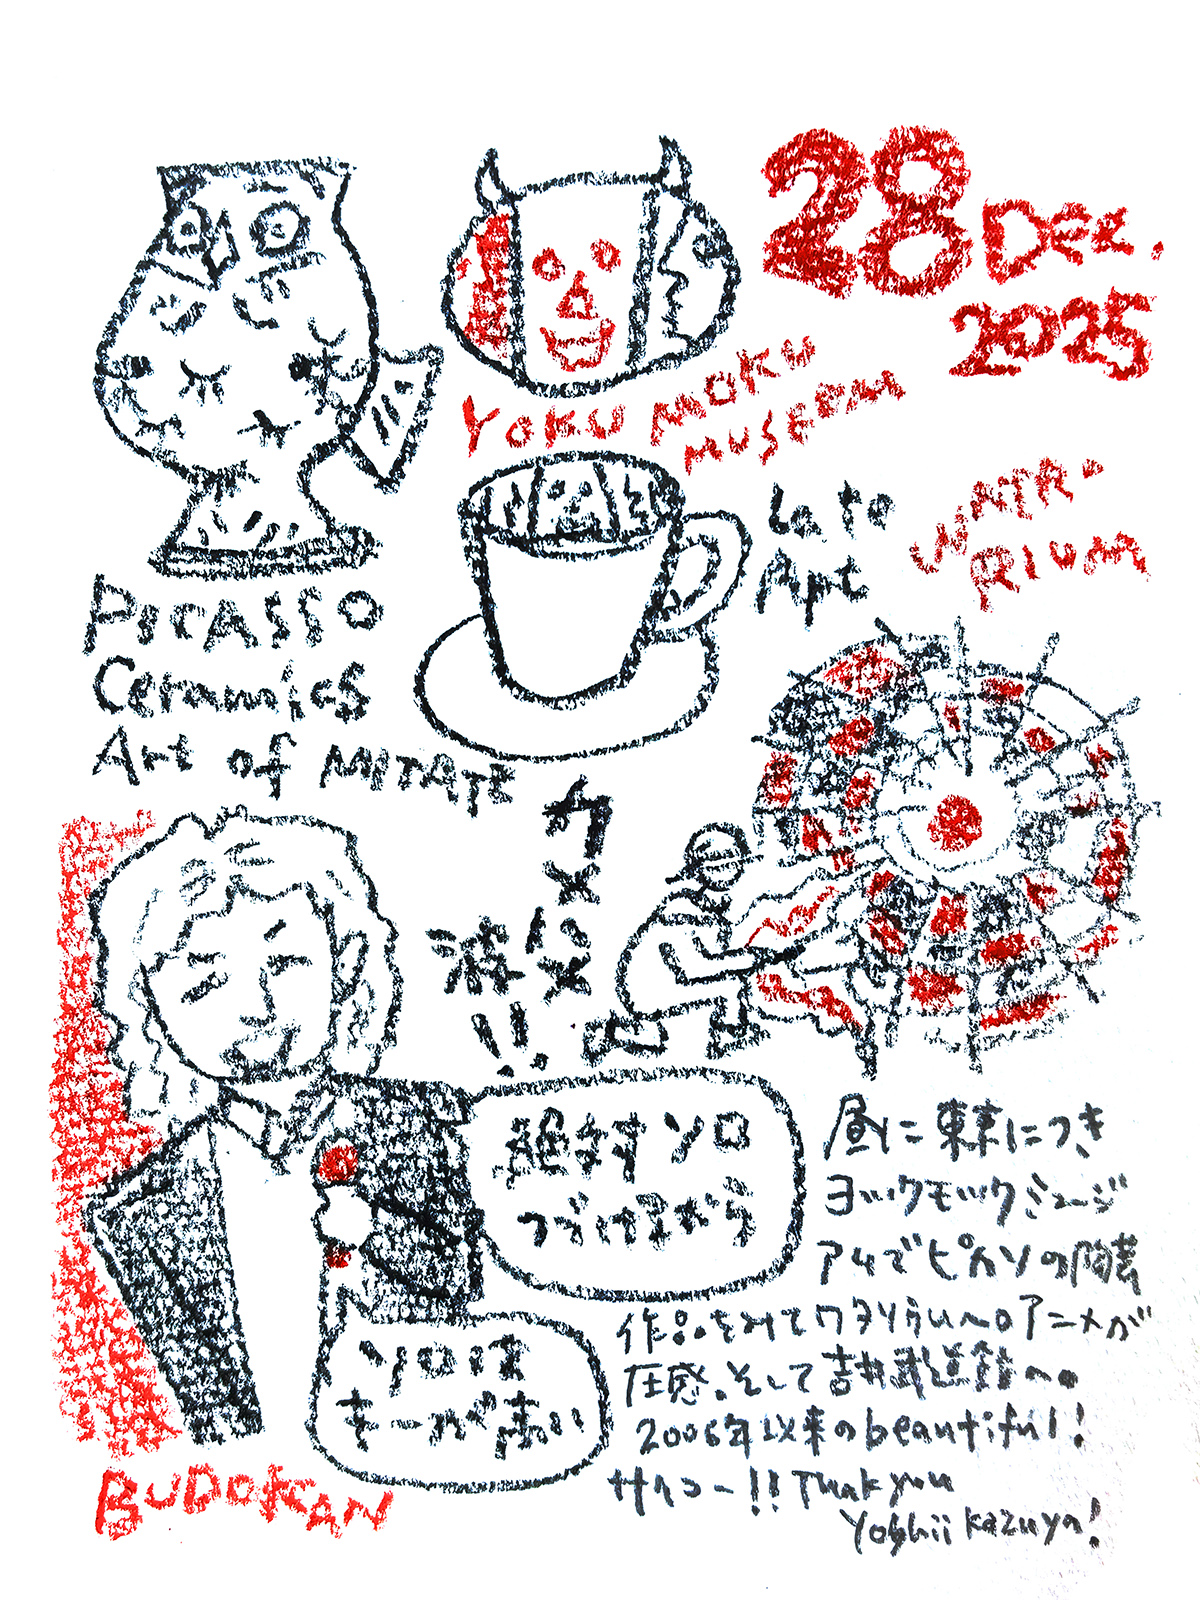 28 Dec.
2025
YOKU MOKU
MUSEUM
WATA-
RIUM
Late
Art
PICASSO
Ceramics
Art of MITATE
絶対ソロ
つづけるから
ソロは
キーが高い
BUDOKAN
昼に東京につき
ヨックモックミュージ
アムでピカソの陶芸
作品をみてワタリウムへのアニメが
圧感。そして吉井武道館へ。
2006年以来のbeautiful!
サイコー!! Thank you
Yoshii Kazuya!